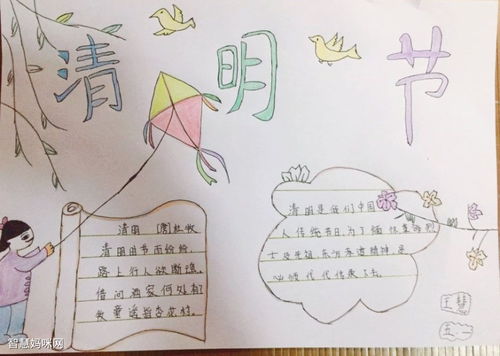 清明节
清明 [唐]杜牧
清明时节雨纷纷,
路上行人欲断魂。
借问酒家何处有?
牧童遥指杏花村。
清明是我们中国
人传统节日,为了缅怀革命烈
士及先祖,孝道精神
代代传承下去。
王慧
智慧妈咪网